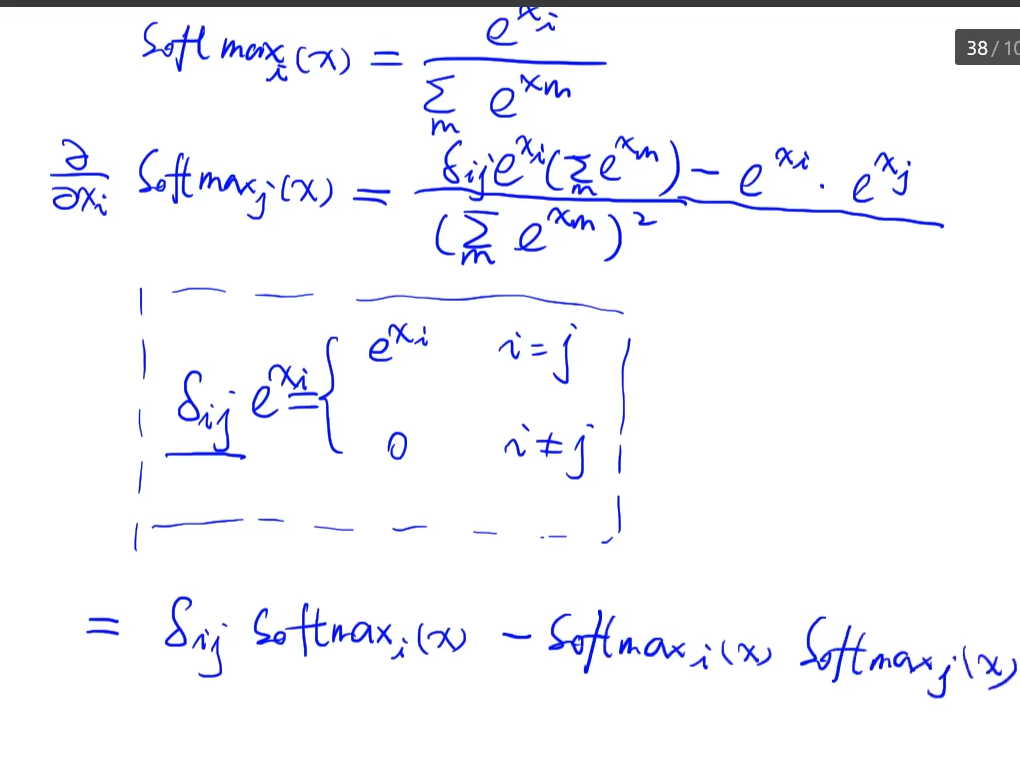 Softmax_i(x) = e^{x_i} / Σ_m e^{x_m}
38 / 10
∂/∂x_i Softmax_j(x) = (δ_{ij} e^{x_i} (Σ_m e^{x_m}) − e^{x_i} · e^{x_j}) / (Σ_m e^{x_m})^2
δ_{ij} e^{x_i} = { e^{x_i} i = j
0 i ≠ j
= δ_{ij} Softmax_i(x) − Softmax_i(x) Softmax_j(x)